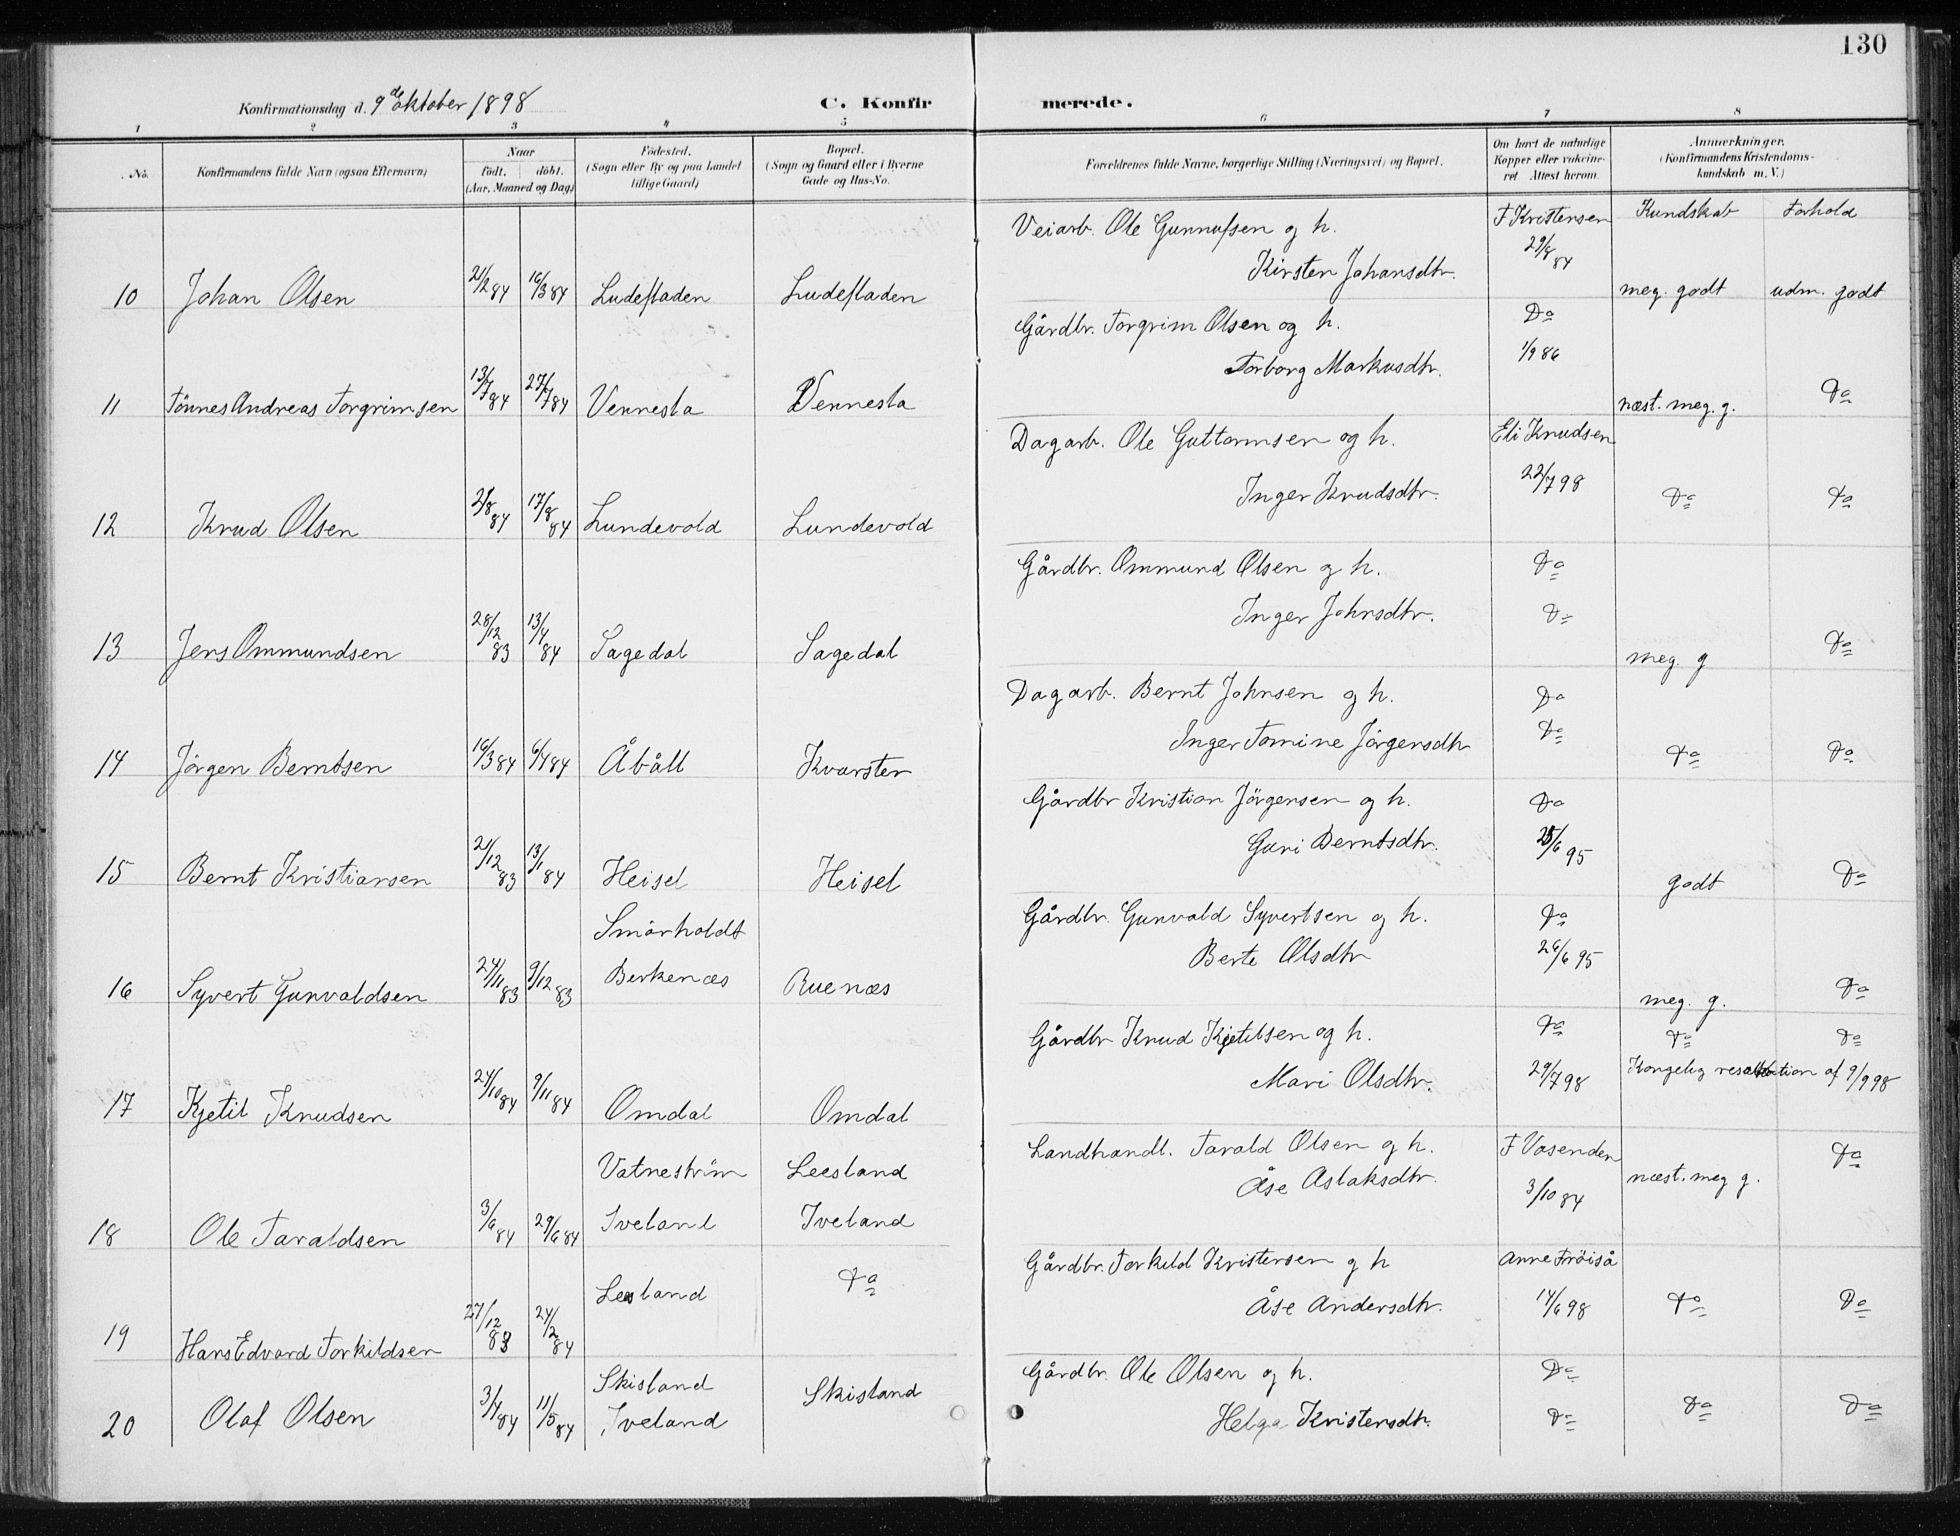 130
Konfirmationsdag d. 9de oktober 1898 C. Konfir merede.
1 2 3 4 5 6 7 8
No. Konfirmandens fulde Navn (ogsaa Efternavn) Naar födt. döbt. (Aar, Maaned og Dag) Födested. (Sogn eller By og paa Landet tillige Gaard) Bopæl. (Sogn og Gaard eller i Byerne Gade og Hus-No. Forældrenes fulde Navne, borgerlige Stilling (Næringsvei) og Bopæl. Om havt de naturlige Kopper eller vakcineret Attest herom. Anmærkninger. (Konfirmandens Kristendomskundskab m. V.)
Kundskab Forhold
Veiarb. Ole Gunnufsen og h. F Kristensen
Kirsten Johansdtr. 29/8 84
10 Johan Olsen 21/2 84 16/3 84 Ludefladen Ludefladen meg. godt udm. godt
Gårdbr. Torgrim Olsen og h. Do
Torborg Markusdtr. 1/9 86
11 Tönnes Andreas Torgrimsen 13/7 84 27/7 84 Vennesla Vennesla næst. meg. g. Do
Dagarb. Ole Guttormsen og h. Eli Knudsen
Inger Knudsdtr. 22/7 98
12 Knud Olsen 2/8 84 17/8 84 Lundevold Lundevold Do Do
Gårdbr. Ommund Olsen og h. Do
Inger Johnsdtr. Do
13 Jens Ommundsen 28/12 83 13/4 84 Sagedal Sagedal meg. g Do
Dagarb. Bernt Johnsen og h. Do
Inger Tomine Jörgensdtr Do
14 Jörgen Berntsen 16/3 84 6/4 84 Åbåll Kvarsten Do Do
Gårdbr Kristian Jörgensen og h. Do
Guri Berntsdtr. 25/6 95
15 Bernt Kristiansen 21/12 83 13/1 84 Heisel Heisel godt Do
Smörholdt Gårdbr. Gunvald Syvertsen og h. Do
Berte Olsdtr 26/6 95
16 Syvert Gunvaldsen 24/11 83 9/12 83 Berkenæs Ruenæs meg. g. Do
Gårdbr Knud Kjetilsen og h. Do Do Do
Mari Olsdtr. 29/7 98 Kongelig resolution af 9/9 98
17 Kjetil Knudsen 24/10 84 9/11 84 Omdal Omdal
Vatneström Leesland Landhandl. Tarald Olsen og h. F Vasenden Do
Åse Aslaksdtr. 3/10 84 næst. meg g.
18 Ole Taraldsen 3/6 84 29/6 84 Iveland Iveland
Gårdbr. Torkild Kristensen og h Anne Fröiså
Leesland Do Åse Andersdtr. 14/6 98 Do Do
19 Hans Edvard Torkildsen 27/12 83 24/2 84
Skisland Skisland Gårdbr. Ole Olsen og h. Do
20 Olaf Olsen 3/4 84 11/5 84 Iveland Helga Kristensdtr. Do Do Do